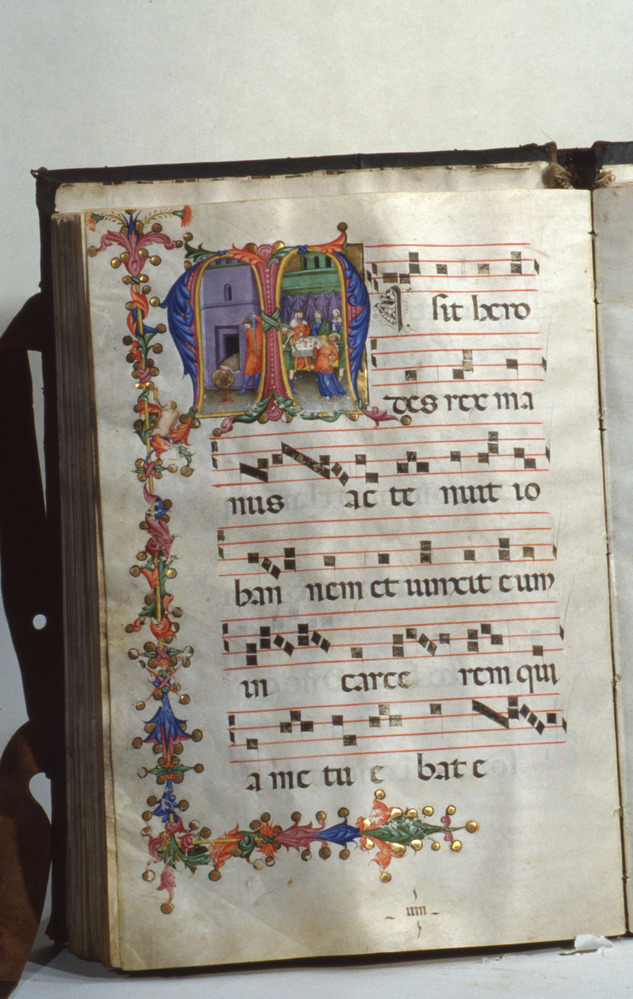 MI sit hero
des rex ma
nus ac te nuit io
han nem et uinxit eum
in carce rem qui
a me tu e bat e